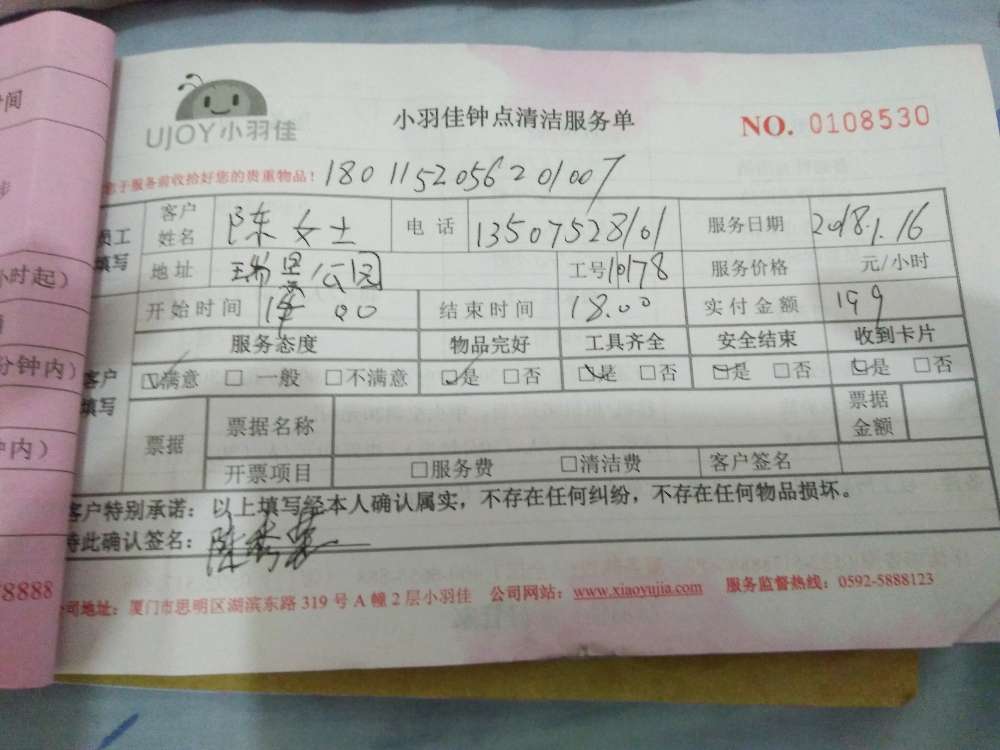 间
UJOY小羽佳
小羽佳钟点清洁服务单
NO. 0108530
于服务前收拾好您的贵重物品！ 1801152056201007
员工填写 客户姓名 陈女士 电话 13507528101 服务日期 2018.1.16
小时起）
地址 瑞景公园 工号 10178 服务价格 元/小时
开始时间 00 结束时间 18.00 实付金额 199
服务态度 物品完好 工具齐全 安全结束 收到卡片
分钟内）
客户填写 ☑满意 □一般 □不满意 ☑是 □否 ☑是 □否 ☑是 □否 ☑是 □否
票据 票据名称 票据金额
内）
开票项目 □服务费 □清洁费 客户签名
客户特别承诺：以上填写经本人确认属实，不存在任何纠纷，不存在任何物品损坏。
特此确认签名：陈秀
8888
公司地址：厦门市思明区湖滨东路 319 号 A 幢 2 层小羽佳 公司网站：www.xiaoyujia.com 服务监督热线：0592-5888123